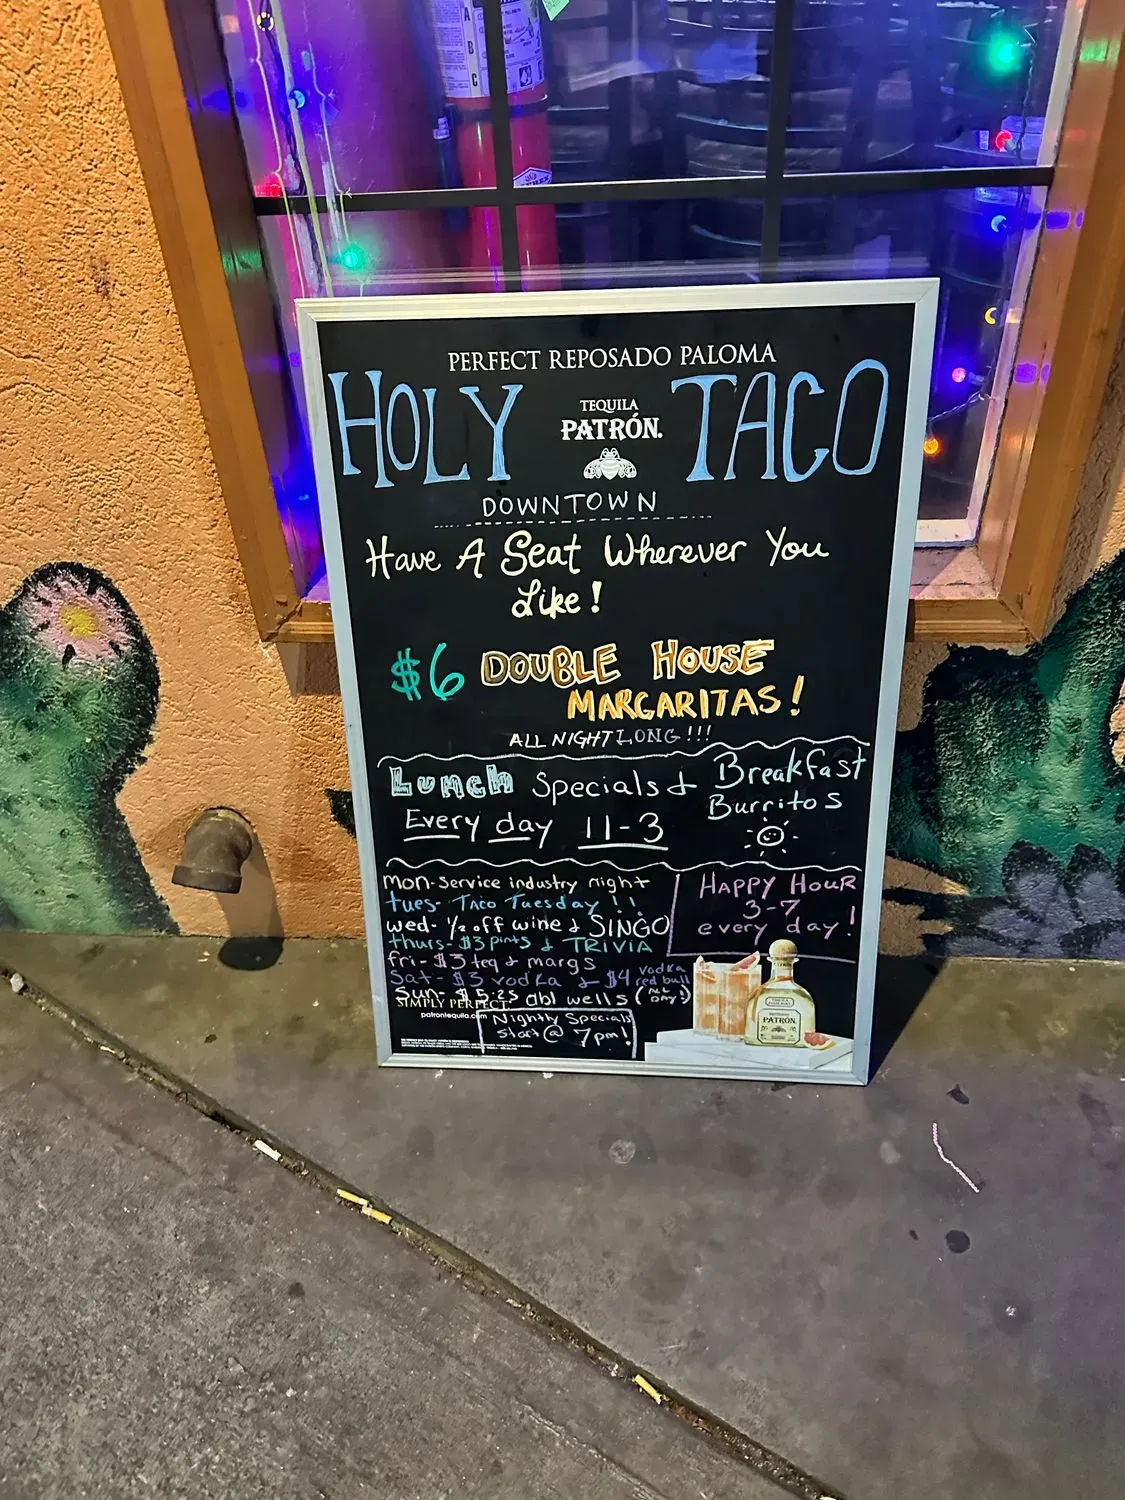 A
B
C
PERFECT REPOSADO PALOMA
HOLY TACO
TEQUILA
PATRÓN.
DOWNTOWN
Have A Seat Wherever You
Like!
$6 DOUBLE HOUSE
MARGARITAS!
ALL NIGHT LONG!!!
Lunch Specials & Breakfast
Burritos
Every day 11-3
Mon-Service industry night
tues- Taco Tuesday!!
wed- 1/2 off wine & SINGO
thurs- $3 pints & TRIVIA
fri- $3 teq & margs
Sat- $3 vodka & $4 vodka
red bull
Sun- $5.25 dbl wells (ALL
DAY!)
HAPPY HOUR
3-7
every day!
SIMPLY PERFECT.
patrontequila.com
Nightly Specials
start @ 7pm!
PATRÓN